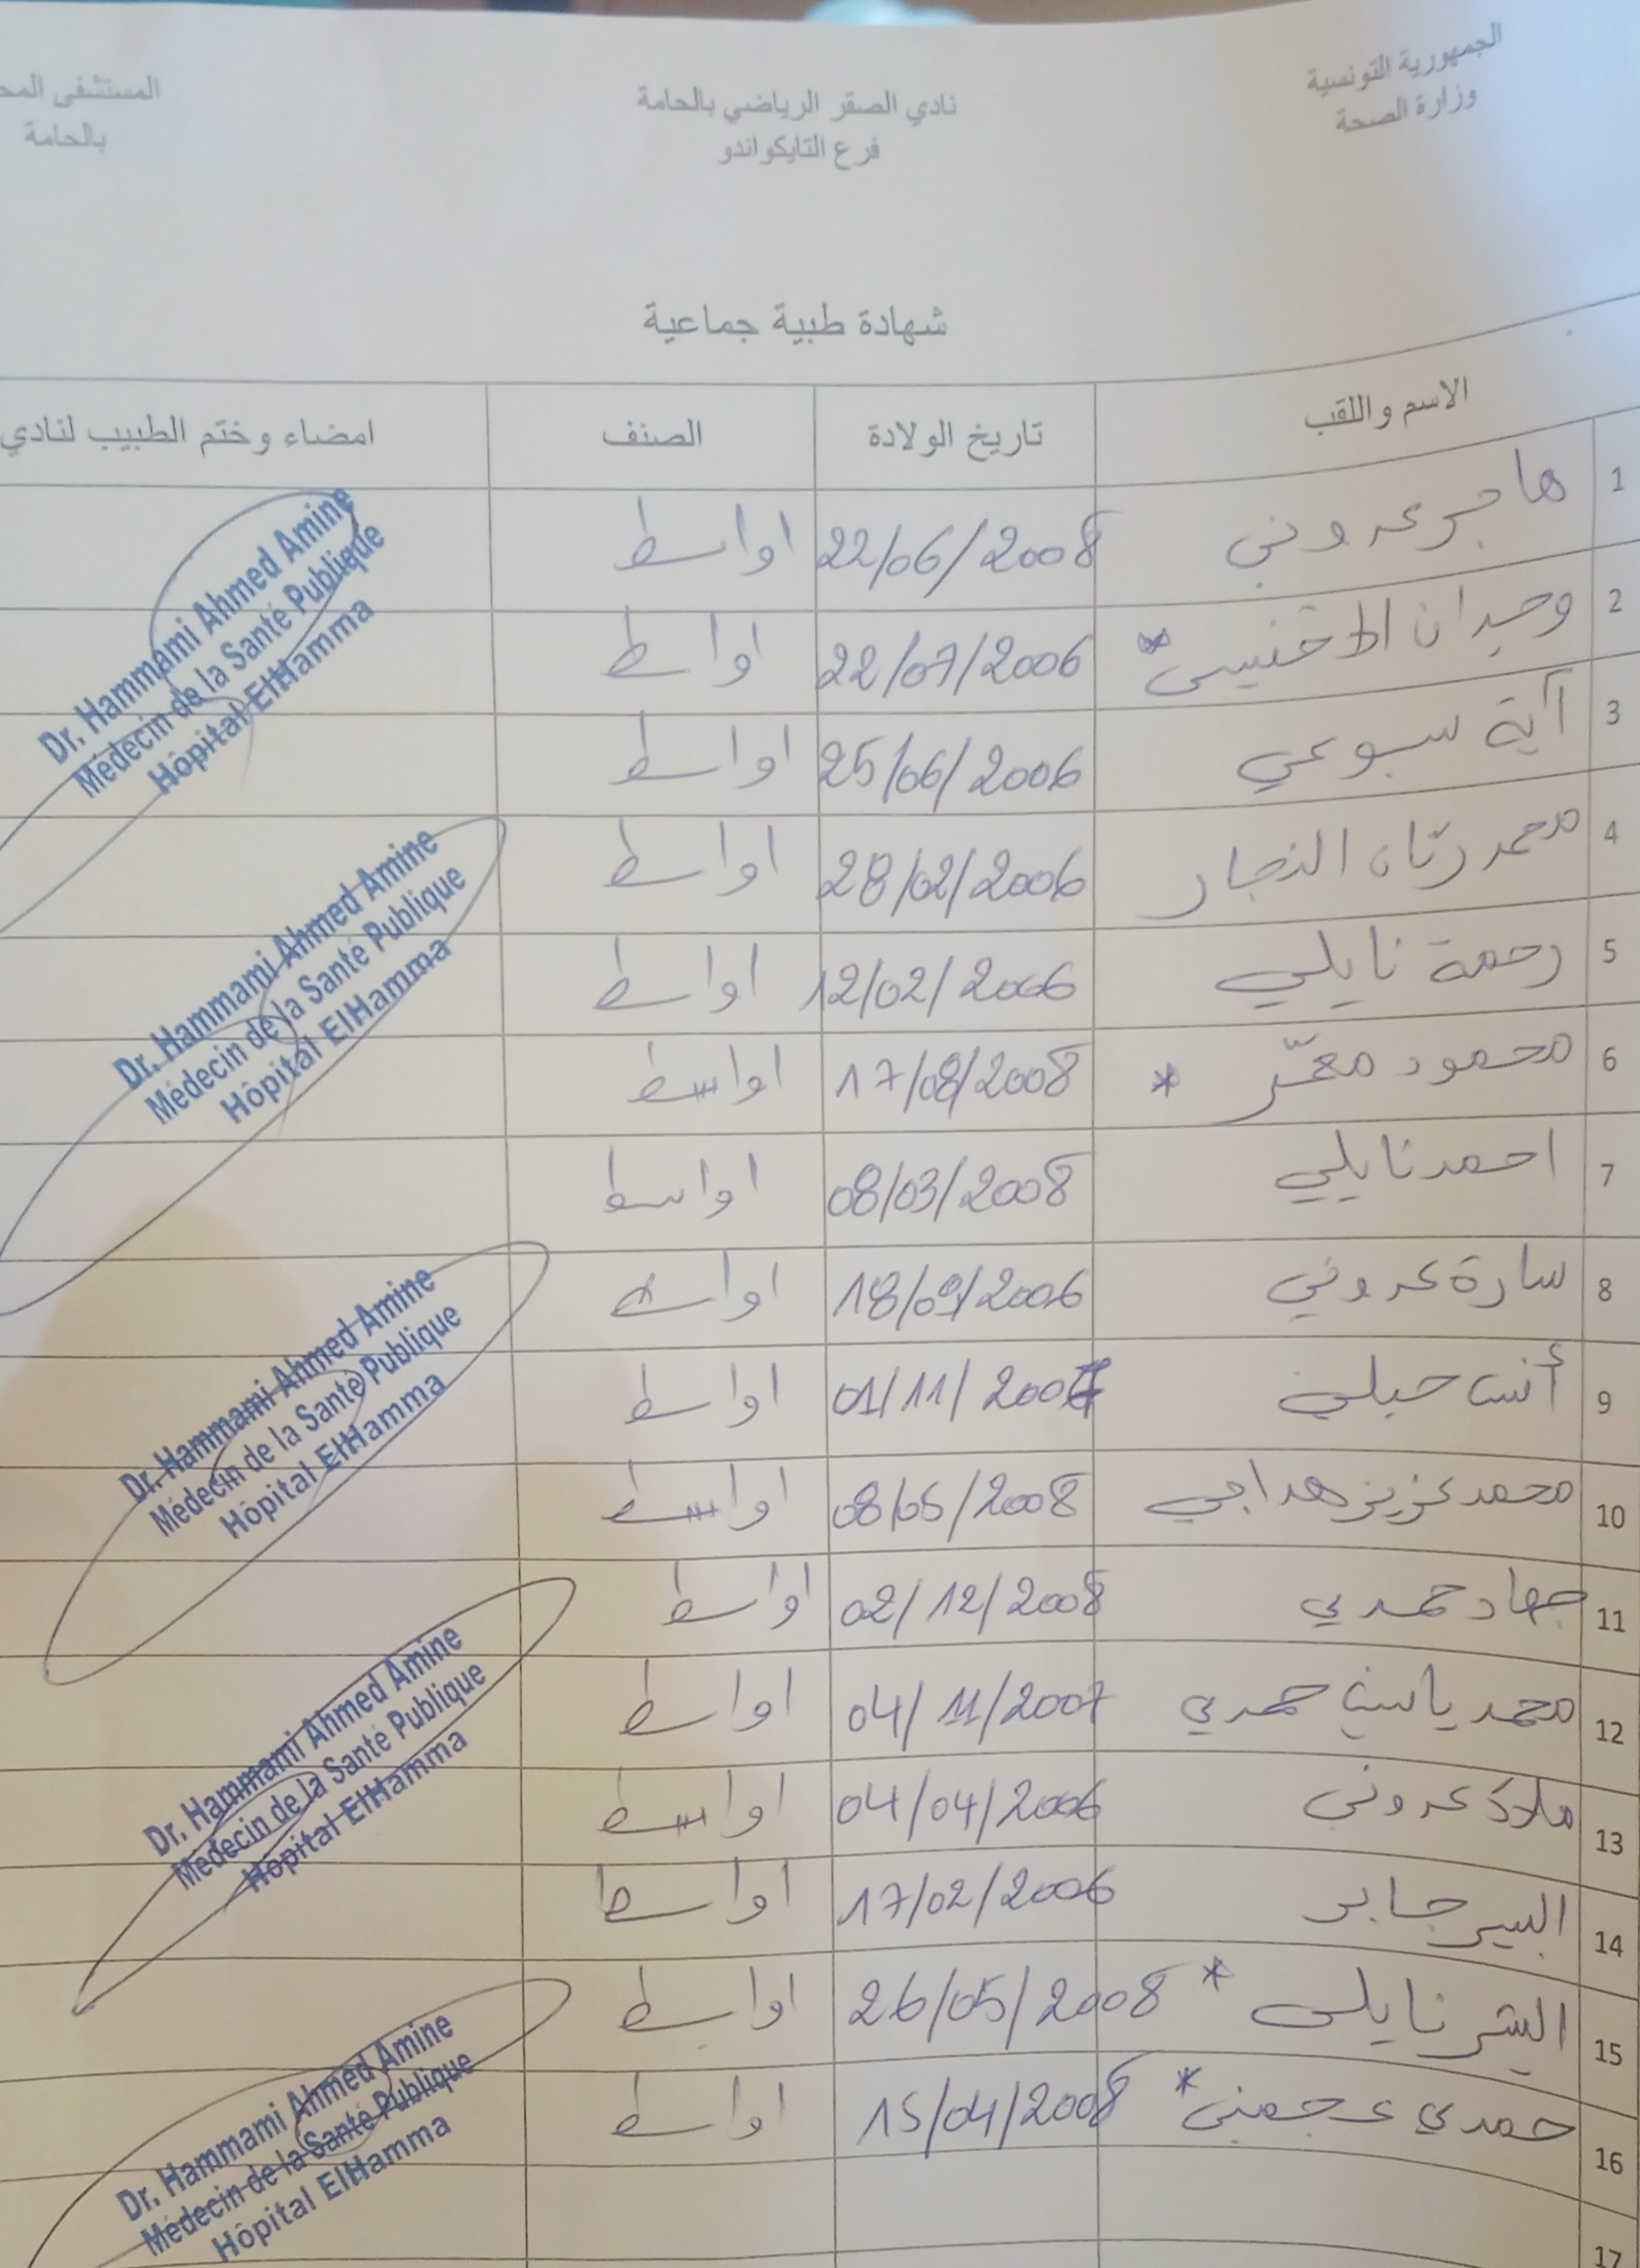 الجمهورية التونسية
وزارة الصحة
نادي الصقر الرياضي بالحامة
فرع التايكواندو
المستشفى
بالحامة
شهادة طبية جماعية
الاسم واللقب تاريخ الولادة الصنف امضاء وختم الطبيب لنادي
1 هاجر عروني 22/06/2008 اواسط
2 وجدان 22/07/2006 اواسط
3 آية سبوعي 25/06/2006 اواسط
4 محمد ريّان النجار 28/02/2006 اواسط
5 رحمة نايلي 12/02/2006 اواسط
6 محمود * 17/08/2008 اواسط
7 احمد نايلي 08/03/2008 اواسط
8 سارة عروني 18/09/2006 اواسط
9 أنس 01/11/2007 اواسط
10 محمد عزيز هداجي 08/05/2008 اواسط
11 جهاد حمدي 02/12/2008 اواسط
12 محمد ياسين حمدي 04/11/2007 اواسط
13 ملاك عروني 04/04/2006 اواسط
14 جابر 17/02/2006 اواسط
15 نايلي * 26/05/2008 اواسط
16 حمدي عجمني * 15/04/2008 اواسط
17
Dr. Hammami Ahmed Amine
Médecin de la Santé Publique
Hôpital ElHamma
Dr. Hammami Ahmed Amine
Médecin de la Santé Publique
Hôpital ElHamma
Dr. Hammami Ahmed Amine
Médecin de la Santé Publique
Hôpital ElHamma
Dr. Hammami Ahmed Amine
Médecin de la Santé Publique
Hôpital ElHamma
Dr. Hammami Ahmed Amine
Médecin de la Santé Publique
Hôpital ElHamma